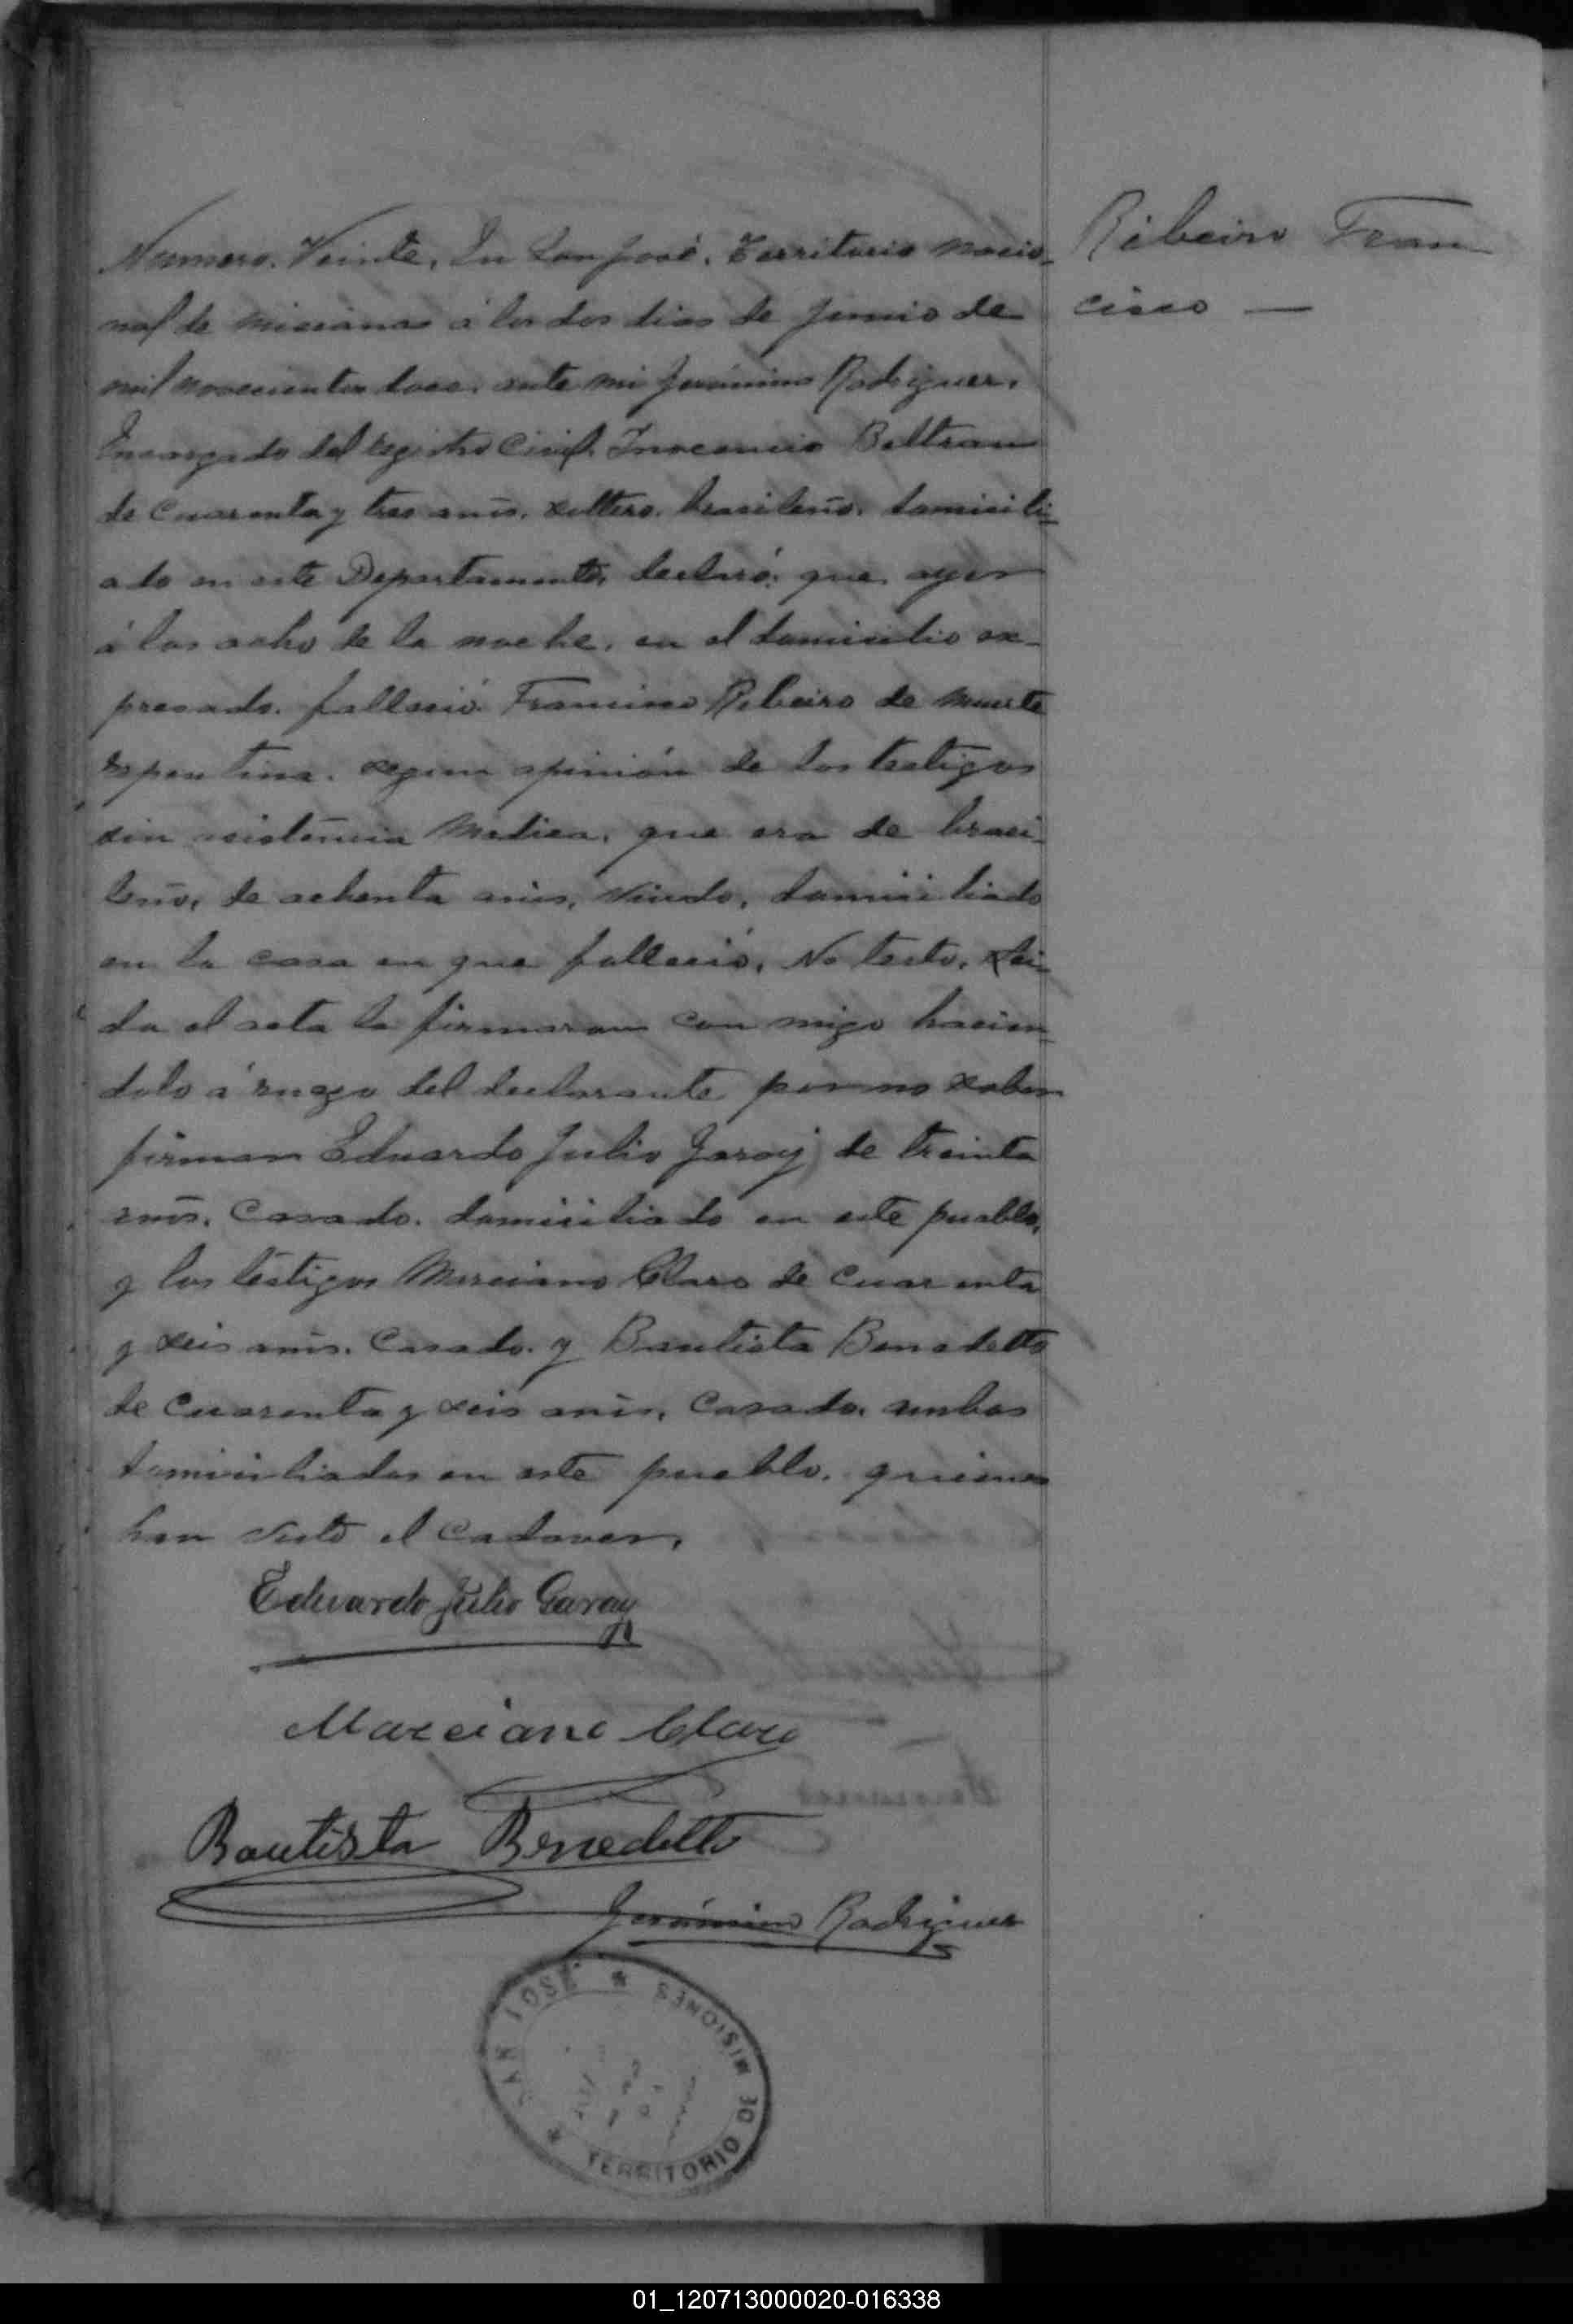 Numero. Veinte. En San José. Territorio Nacio-
nal de Misiones á los dos dias de Junio de
mil novecientos doce. ante mi Jerónimo Rodriguez.
Encargado del registro Civil. Inocencio Beltran
de Cuarenta y tres anõs. soltero. brasilenõ. domicili-
ado en este Departamento, declaró: que ayer
á las ocho de la noche, en el domicilio ex-
presado. falleció Francisco Ribeiro de muerte
repentina. segun opinión de los testigos
sin asistencia Medica. que era de brasi-
lenõ, de ochenta anõs, Viudo, domiciliado
en la casa en que falleció. No testo. Lei-
da el acta la firmaron con migo hacien-
dolo á ruego del declarante por no saber
firmar Eduardo Julio Garay de treinta
anõs. Casado. domiciliado en este pueblo,
y los testigos Marciano Claro de Cuarenta
y seis anõs. Casado. y Bautista Benedetto
de Cuarenta y seis anõs, Casado. ambos
domiciliados en este pueblo. quienes
han visto el Cadaver.
Eduardo Julio Garay
Marciano Claro
Bautista Benedetto
Jerónimo Rodriguez
SAN JOSÉ * TERRITORIO DE MISIONES *
Ribeiro Fran
cisco —
01_120713000020-016338